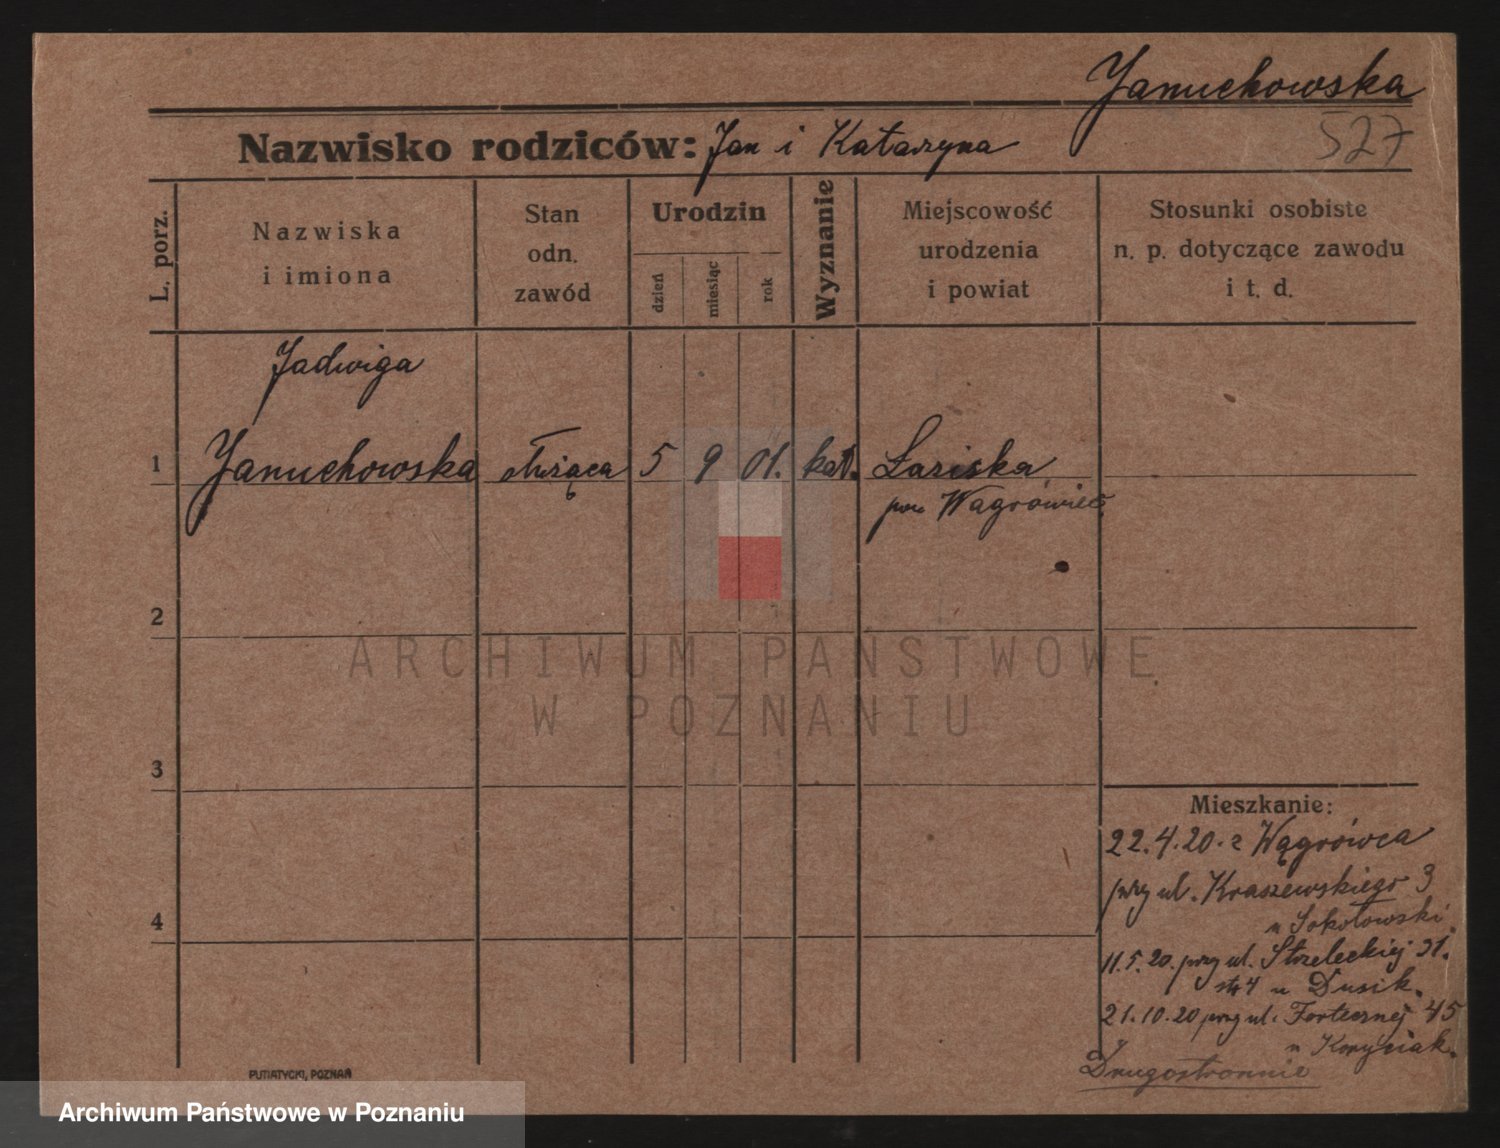 Januchowska
527
Nazwisko rodziców: Jan i Katarzyna
L. porz.
Nazwiska
i imiona
Stan
odn.
zawód
Urodzin
dzień
miesiąc
rok
Wyznanie
Miejscowość
urodzenia
i powiat
Stosunki osobiste
n. p. dotyczące zawodu
i t. d.
Jadwiga
1 Januchowska służąca 5 9 01. kat. Łaziska
pow Wągrówiec
2
ARCHIWUM PAŃSTWOWE
W POZNANIU
3
Mieszkanie:
22.4.20. z Wągrówca
przy ul. Kraszewskiego 3
u Sokołowski
4
11.5.20. przy ul. Strzeleckiej 31.
u Dusik.
21.10.20 przy ul. Fortecznej 45
u
Drugostronnie
PUTIATYCKI, POZNAŃ
Archiwum Państwowe w Poznaniu